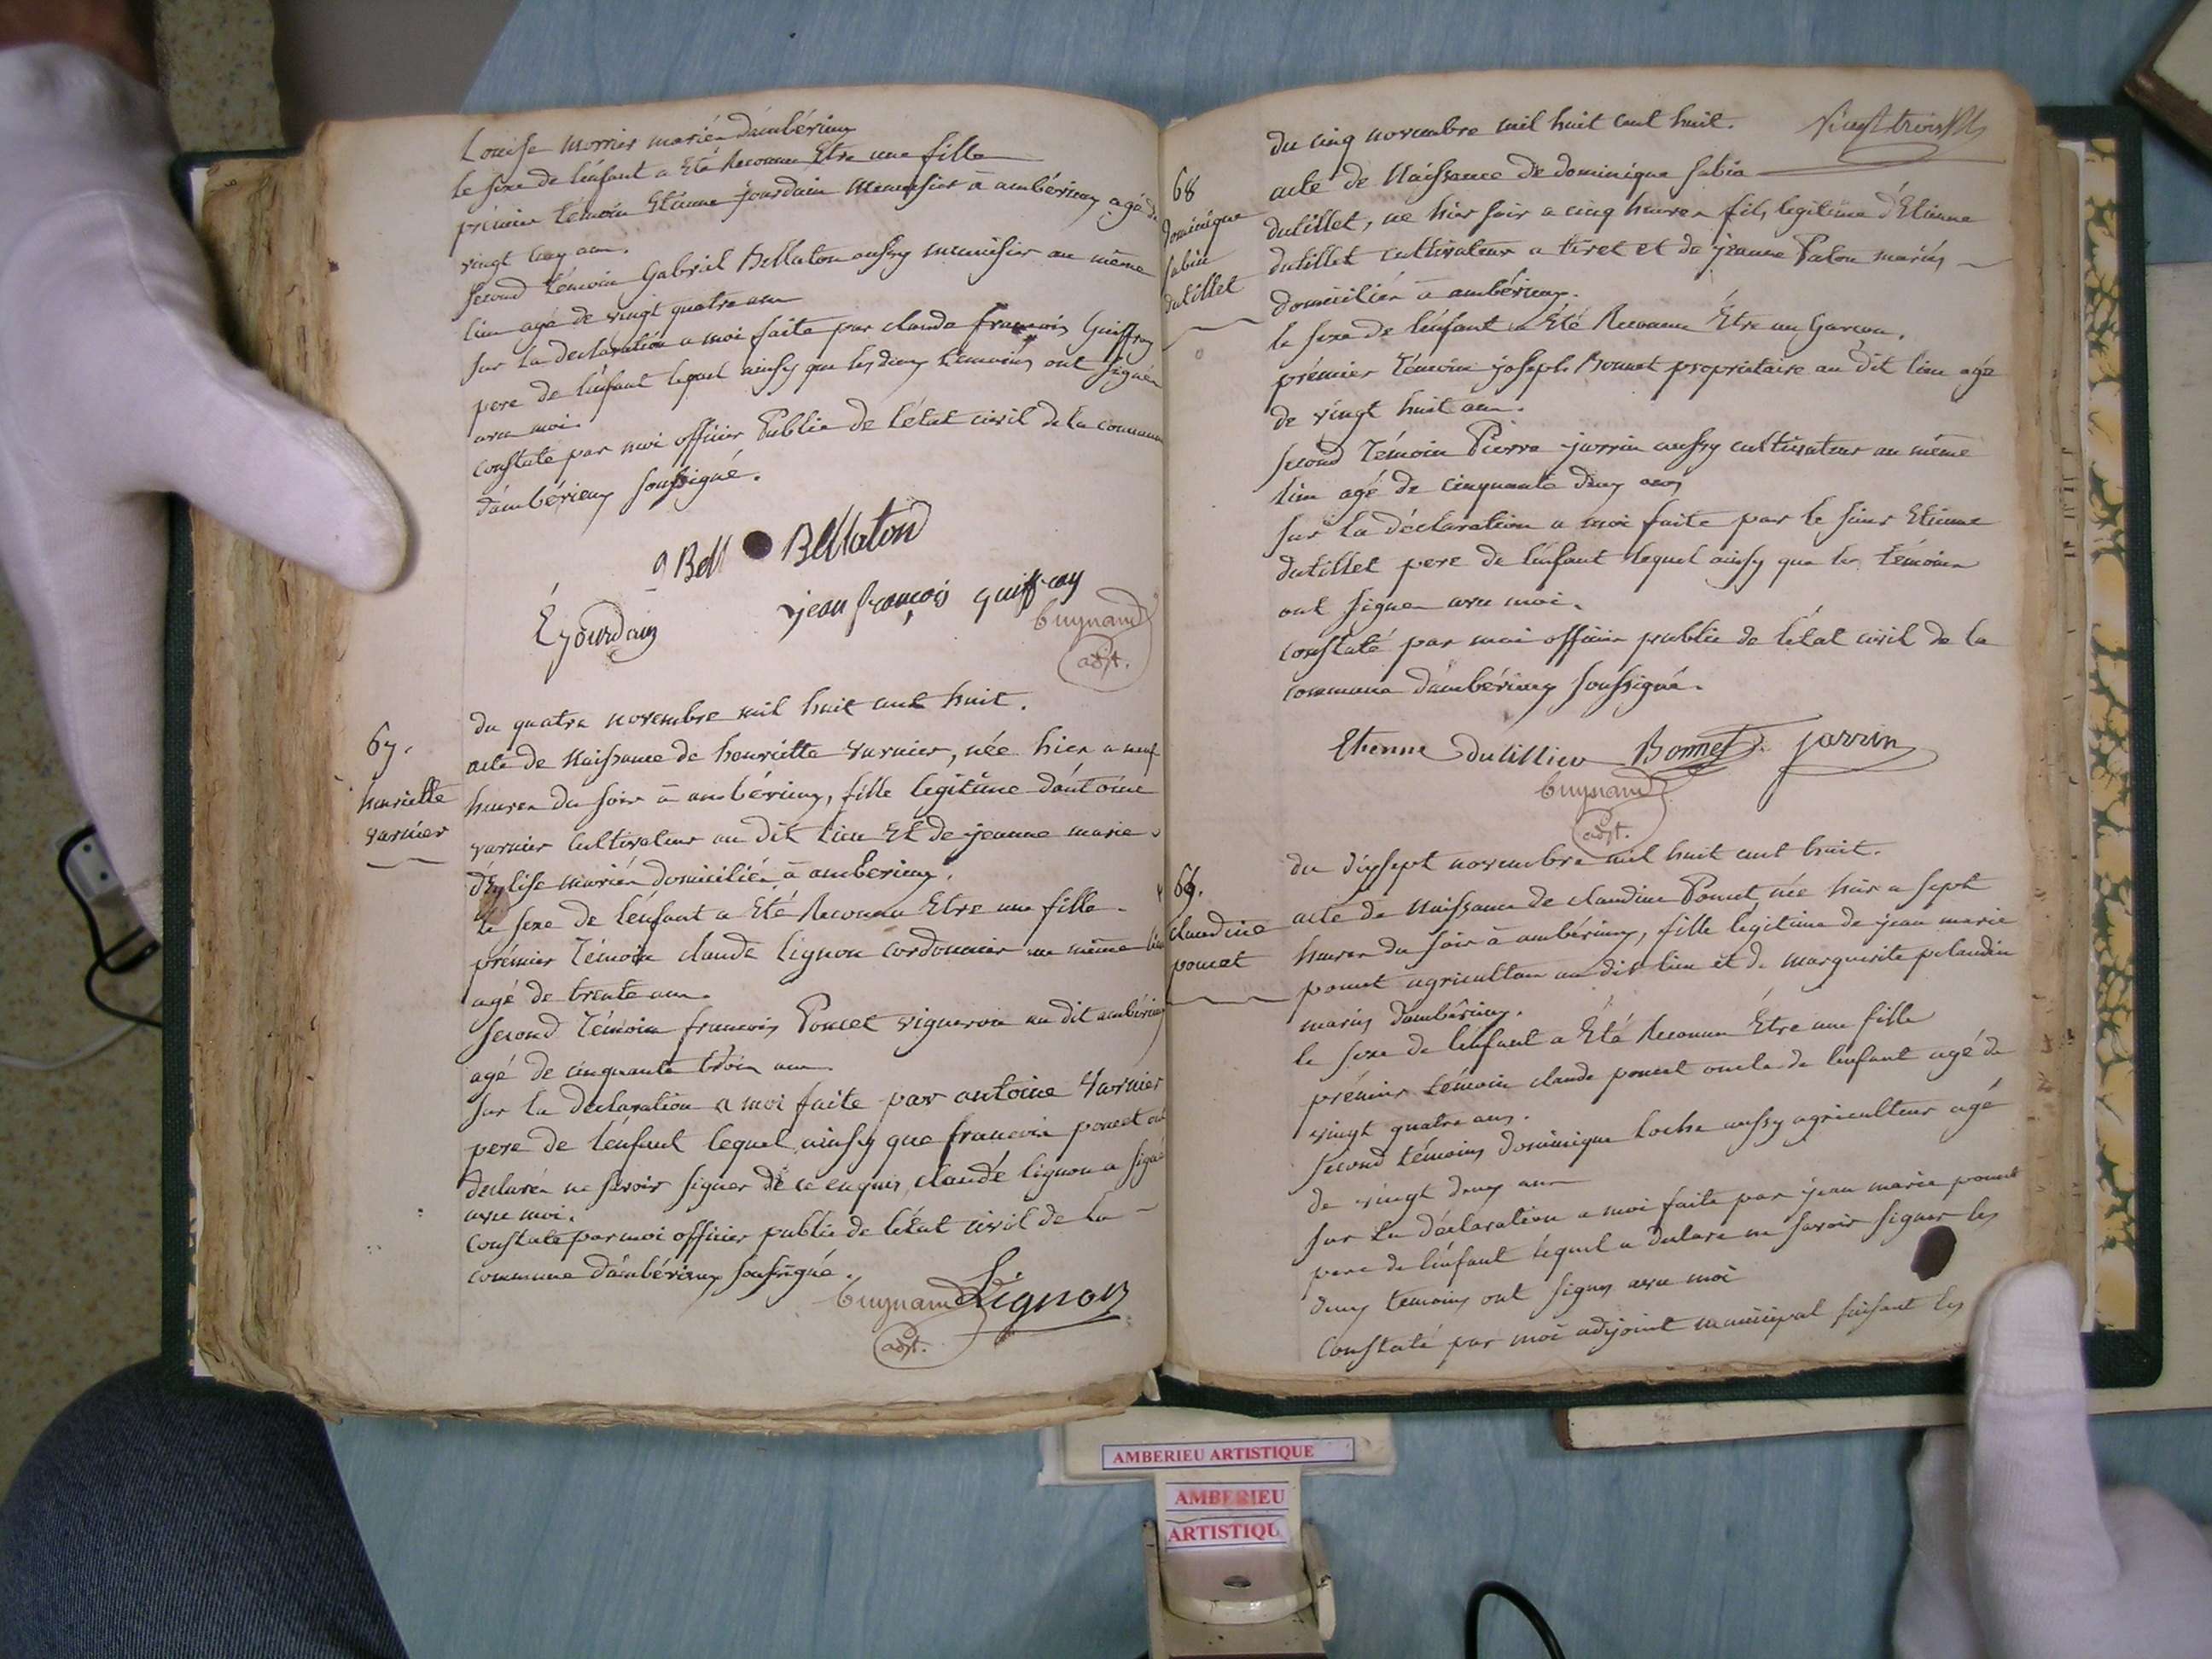 Louise morrier mariés d'ambérieux
le sexe de l'enfant a Eté Reconnu Etre une fille
prémier témoin Etienne jourdain menuisier à ambérieux agé de
vingt ans.
second témoin Gabriel Bellaton aussy menuisier au même
lieu agé de vingt quatre ans
sur la declaration a moi faite par claude francois Guiffray
pere de l'enfant lequel ainsy que les deux témoins ont signés
avec moi.
constaté par moi officier Public de l'état civil de la commune
d'ambérieux soussigné.
g Bell Bellaton
E jourdain
jean françois guiffray
bugnand
adjt.
67.
henriette
varnier
du quatre novembre mil huit cent huit.
acte de Naissance de henriette varnier, née hier a neuf
heures du soir à ambérieux, fille legitime d'antoine
varnier Cultivateur au dit lieu Et de jeanne marie
d'Eglise mariés domiciliés à amberieux.
le sexe de l'enfant a Eté Reconnu Etre une fille.
prémier témoin claude Lignon cordonnier au même lieu
agé de trente ans.
second témoin francois Poncet vigneron au dit ambérieux
agé de cinquante trois ans.
sur la declaration a moi faite par antoine Varnier
pere de l'enfant lequel ainsy que francois poncet ont
declarés ne savoir signer de ce enquis, claude lignon a signé
avec moi.
Constaté par moi officier public de l'état civil de la
commune d'ambérieux soussigné.
bugnand Lignon
adjt.
Vingt trois
du cinq novembre mil huit cent huit.
68
dominique
sabin
dutillet
acte de Naissance de dominique sabin
dutillet, né hier soir a cinq heures fils legitime d'Etienne
dutillet cultivateur a tiret et de jeanne Paton mariés
domiciliés à ambérieux.
le sexe de l'enfant a Eté Reconnu Etre un Garcon.
prémier témoin joseph Bonnet propriétaire au dit lieu agé
de vingt huit ans.
second témoin Pierre jarrin aussy cultivateur au même
lieu agé de cinquante deux ans
sur la déclaration a moi faite par le sieur Etienne
dutillet pere de l'enfant lequel ainsy que les témoins
ont signés avec moi.
constaté par moi officier public de l'état civil de la
commune d'ambérieux soussigné.
Etienne dutillieu Bonnet jarrin
bugnand
adjt.
69.
claudine
poncet
du dixsept novembre mil huit cent huit.
acte de Naissance de claudine Poncet, née hier a sept
heures du soir à ambérieux, fille legitime de jean marie
poncet agriculteur au dit lieu et de marguerite pelandin
mariés d'ambérieux.
le sexe de l'enfant a Eté Reconnu Etre une fille
prémier témoin claude poncet oncle de l'enfant agé de
vingt quatre ans.
second témoins dominique Loche aussy agriculteur agé
de vingt deux ans
sur la déclaration a moi faite par jean marie poncet
pere de l'enfant lequel a declaré ne savoir signer les
deux temoins ont signés avec moi
Constaté par moi adjoint municipal faisant les
AMBERIEU ARTISTIQUE
AMBERIEU
ARTISTIQU